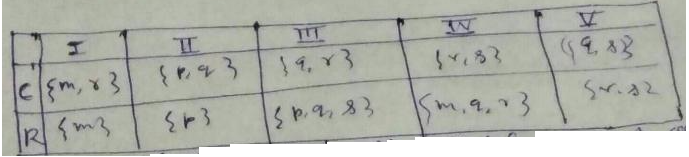 I II III IV V
C {m, r} {p, q} {q, r} {r, s} {q, s}
R {m} {p} {p, q, s} {m, q, r} {r, s}